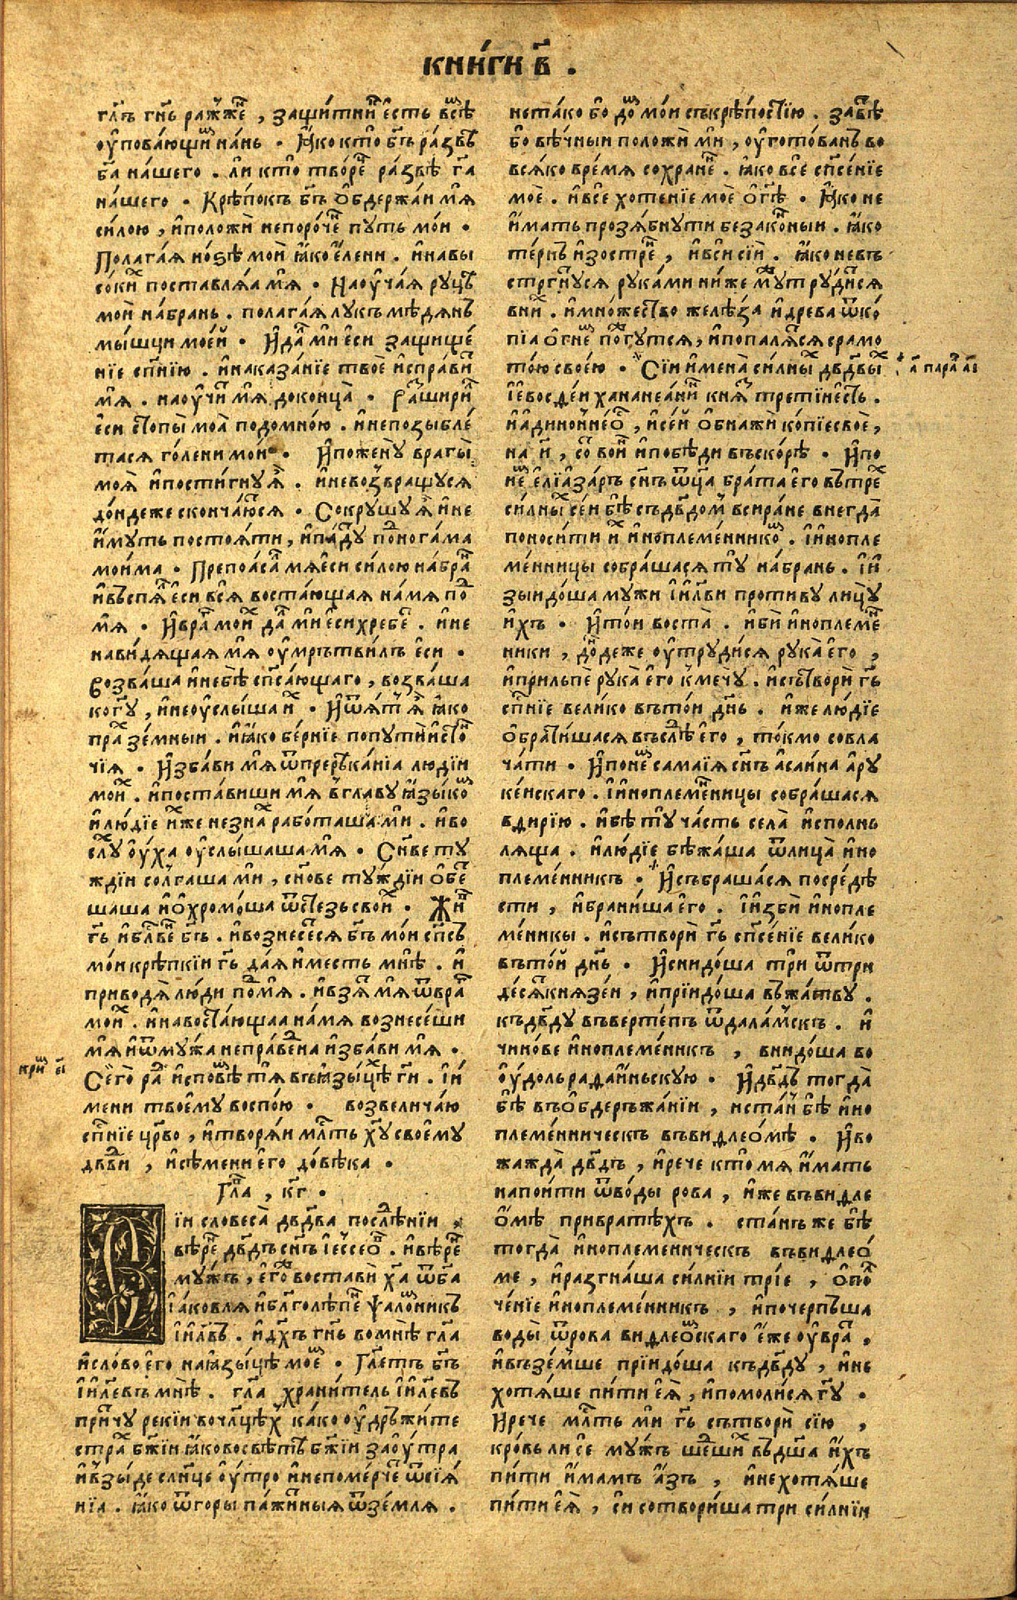 кни́ги в҃ .
гл҃ъ гн҃ь ражже , защи́тник е́сть все́
уповающи на́нь . Я҆́ко кто̀ бг҃ъ ра́звѣ
бг҃а на́шего . ли кто̀ творе́ц ра́звѣ гд҃а
на́шего . Крѣ́покъ бг҃ъ о҆бдержа́и мѧ̀
си́лою , и҆положѝ непоро́че пу́ть мо́и .
Полага́я но́ѕѣ моѝ ꙗ҆́ко е҆ле́ни . и҆навы
со́ки поставля́я мѧ̀ . Наоуча́я ру́цѣ
моѝ на́брань . полага́я лу́къ мѣ́дянъ
мы́шци мое́й . И҆да́л мѝ еси защище́
нїе сп҃нїю . и҆наказа́нїе твоѐ и҆спра́ви
мѧ̀ . наоучи́ мѧ̀ доконца̀ . Разшири́л
е҆сѝ стопы̀ моѧ̀ подомно́ю . и҆непозыбле́
тася го́лени моѝ . И҆пожену̀ врагы̀
моѧ̀ и҆пости́гну ѧ̀ . и҆невозвращуся
до́ндеже сконча́ются . Сокрушу̀ ѧ̀ и҆не
и҆́муть постоя́ти , и҆па́ду под нога́ма
мои́ма . Препоѧ́сал мѧ̀ е҆си си́лою на́бран
и҆въспѧ́л е҆си всѧ̀ воста́ющая на́мя под
мѧ̀ . И҆враг мои́х да́л мѝ е҆си хребет . и҆не
нави́дящая мѧ̀ оу҆мрътви́лъ е҆си .
возва́ша и҆небѣ̀ сп҃са́ющаго , возва́ша
ко гд҃у , и҆неоу҆слы́ша и҆х . И҆ѿѧ́т ѧ̀ ꙗ҆ко
прах зе́мныи . и҆ꙗ҆́ко бе́рнїе попути́ и҆сто
чїя . И҆зба́ви мѧ̀ ѿпреръка́нїа люді́и
мои́х . и҆поста́виши мѧ̀ в главу̀ ꙗ҆зы́ком
и҆лю́дїе и҆́же незна́х рабо́таша мѝ . и҆во
слу́х оу҆́ха оу҆слы́шаша мѧ̀ . Сн҃ове ту
жді́и солга́ша мѝ , сн҃ове ту́ждїи о҆бе
шаша и҆о҆хромо́ша ѿстезь свои́х . Жив
гд҃ь и҆блг҃ве́н бг҃ъ . и҆вознесе́ся бг҃ъ мо́и сп҃съ
мо́и крѣ́пкїи гд҃ь да́я и҆ме́сть мнѣ̀ . и҆
приводѧ̀ лю́ди под мѧ̀ . и҆взѧ́ мѧ̀ ѿвраг
мои́х . и҆навоста́ющаа на́мя вознесе́ши
мѧ̀ и҆ѿму́жа непра́ведна и҆зба́ви мѧ̀ .
Сего̀ рад и҆спове́м тѧ̀ въꙗ҆зы́цѣх гд҃и . і҆ и҆
мени твоему̀ воспою̀ . возвелича́ю
сп҃нїе црв҃о , и҆творя́и млс҃ть хр҃у своему̀
дв҃ви , и҆сѣ́мени е҆го̀ до́вѣка .
Гла , к҃г .
Сїи словеса̀ дв҃два послѣ́днїи ,
вѣ́рен дв҃дъ сн҃ъ і҆ессео́в . и҆вѣ́рен
му́жъ , е҆го́же воста́ви хс҃а ѿбг҃а
і҆а́ковля и҆блг҃олѣ́пен ѱало́мникъ
і҆и҃лв҃ъ . и҆дх҃ъ гн҃ь вомнѣ̀ гл҃а
и҆сло́во е҆го̀ наꙗ҆зы́цѣ мое́м . Гл҃етъ бг҃ъ
і҆и҃левъ мнѣ̀ . гл҃а храни́тель і҆и҃левъ
при́тчу рекі́и вочл҃цѣх ка́ко оу҆дръжи́те
стра́х бж҃їи ꙗ҆ковосвѣ́тъ бж҃їи заоу҆́тра
и҆взы́де слн҃це оу҆́тро и҆непоме́рче ѿсїѧ́
нїа . ꙗ҆́ко ѿгоры па́житныя ѿзе́мля .
нета́ко бо до́м мо́и съкрѣ́постїю . завѣ́т
бо вѣ́чныи положѝ мѝ , оу҆гото́ванъ во
вся́ко вре́мя сохране́н . ꙗ҆́ко всѐ сп҃се́нїе
моѐ . и҆все хоте́нїе моѐ о҆гд҃ѣ . Я҆́ко не
и҆́мать прозѧ́бнути безако́ныи . ꙗ҆́ко
те́рнъ и҆зостре́н , и҆вси сїѝ . ꙗ҆́ко невъ
стргнуся рука́ми ниже му́ж труди́ся
вни́х . и҆мно́жество желѣ́за и҆дре́ва ѿко
пїа о҆гне́м пожгутся , и҆попаля́тся срамо
то́ю свое́ю . Сїи и҆мена̀ си́лны́х дв҃двы́х
І҆евосдѐи ханане́анин кня́з трети́и е́сть .
и҆сей о҆бнажѝ ко́пїе своѐ ,
на и , со́т во́ин и҆побѣ́ди въско́рѣ . И҆по
не́м е҆лїаза́ръ сн҃ъ ѿц҃а бра́та е҆го̀ вътрех
си́лны́х се́и бѣ̀ съдв҃дом всира́не внегда̀
поноси́ти и҆м и҆ноплеме́нником . І҆ и҆нопле
ме́нницы собра́шася ту̀ на́брань . і҆ и҆
зыидо́ша му́жи і҆и҃лви проти́ву лицу̀
и҆́хъ . И҆то́и воста̀ . и҆бѝ и҆ноплеме́н
ники , до́ндеже оу҆труди́ся рука̀ е҆го̀ ,
и҆прильпѐ рука̀ е҆го̀ к мечу̀ . и҆сътворѝ гд҃ь
сп҃нїе вели́ко въто́и дн҃ь . и҆́же лю́дїе
о҆брати́шася въслѣ́д е҆го̀ , то́кмо совла
ча́ти . И҆поне́м самаі́я сн҃ъ а҆саи́на а҆ру
ке́искаго . І҆ и҆ноплеме́нницы собра́шася
вдирі́ю . и҆бѣ̀ ту̀ ча́сть села̀ и҆сполнь
ля́ща . и҆лю́дїе бѣжа́ша ѿлица̀ и҆но
племе́нникъ . И҆събраша́ся посре́дѣ
сти , и҆брани́ша е҆го̀ . І҆ и҆збѝ и҆нопле
ме́никы . и҆сътворѝ гд҃ь сп҃се́нїе вели́ко
въто́й дн҃ь . И҆снидо́ша трѝ ѿтри
де́сят князе́и , и҆прїидо́ша въжа́тву .
къдв҃ду въверте́пъ ѿдала́мскъ . и҆
чино́ве и҆ноплеме́никъ , внидо́ша во
оу҆до́ль рафаи́ньскую . И҆дв҃дъ тогда̀
бѣ̀ въо҆бдеръжа́нїи , и҆ста́н бѣ̀ и҆но
племе́нническъ въвифлео́мѣ . И҆во
жажда̀ дв҃дъ , и҆рече кто̀ мя и҆́мать
напои́ти ѿводы́ рова , и҆же въвифле
о҆́мѣ прибратѣ́хъ . ста́нъ же бѣ̀
тогда̀ и҆ноплеме́ническъ въвифлео́
ме , и҆разгна́ша си́лнїи трїе , о҆пол
че́нїе и҆ноплеме́нникъ , и҆почерпъша
воды̀ ѿрова вифлео́мскаго е҆́же оу҆врат ,
и҆възе́мше прїидо́ша къдв҃ду , и҆не
хотя́ше пи́ти е҆ѧ̀ , и҆помоли́ся гд҃у .
И҆рече мл҃ть мѝ гд҃ь сътворѝ сїю̀ ,
кро́вь ли сѐ му́жъ ше́дших въдш҃а и҆́хъ
пи́ти и҆́мамъ а҆́зъ , и҆нехотя́ше
пи́ти е҆ѧ̀ , сѝ сотвори́ша три си́лнїи
а҃ пара а҃і